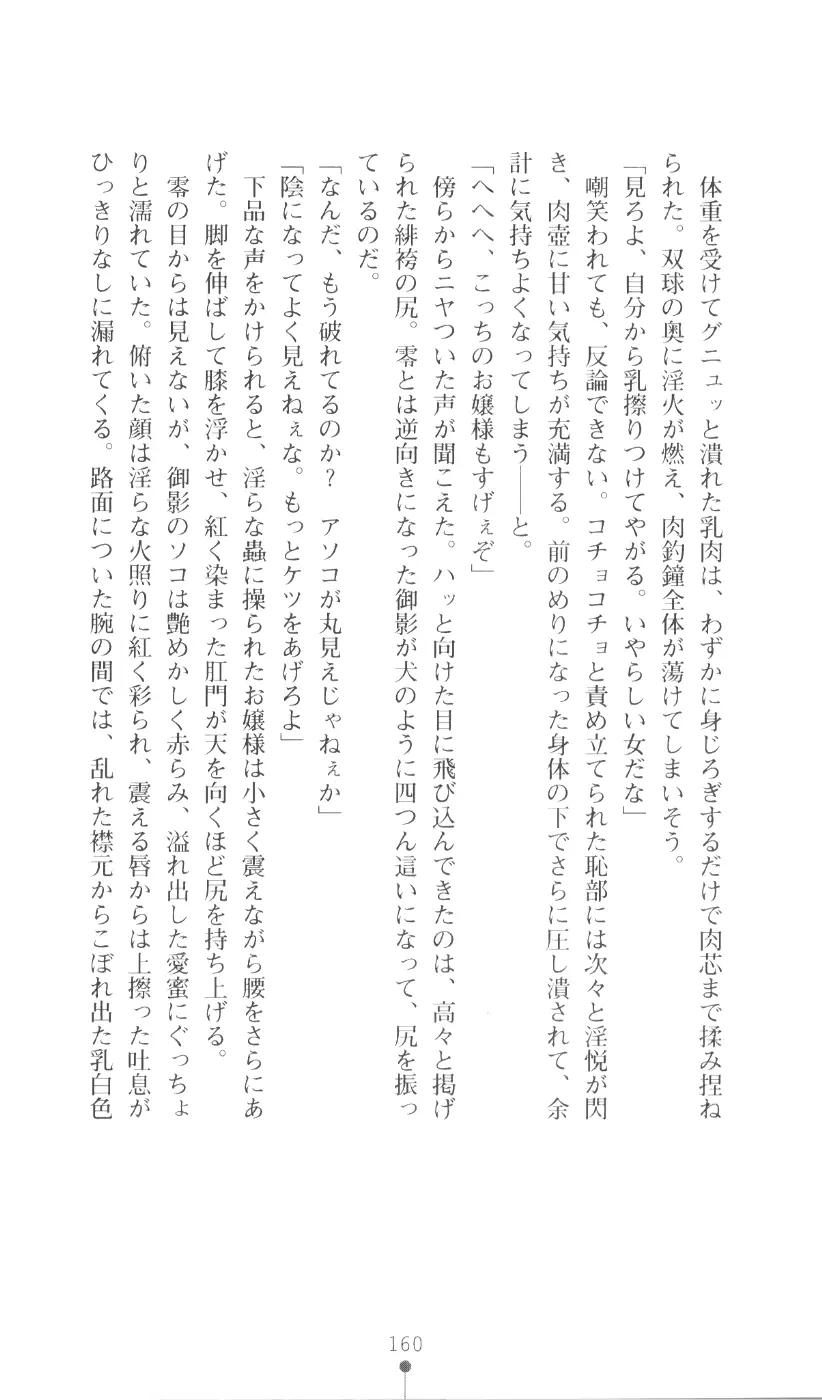 体重を受けてグニュッと潰れた乳肉は、わずかに身じろぎするだけで肉芯まで揉み捏ね
られた。双球の奥に淫火が燃え、肉釣鐘全体が蕩けてしまいそう。
「見ろよ、自分から乳擦りつけてやがる。いやらしい女だな」
嘲笑われても、反論できない。コチョコチョと責め立てられた恥部には次々と淫悦が閃
き、肉壺に甘い気持ちが充満する。前のめりになった身体の下でさらに圧し潰されて、余
計に気持ちよくなってしまう――と。
「へへへ、こっちのお嬢様もすげぇぞ」
傍らからニヤついた声が聞こえた。ハッと向けた目に飛び込んできたのは、高々と掲げ
られた緋袴の尻。零とは逆向きになった御影が犬のように四つん這いになって、尻を振っ
ているのだ。
「なんだ、もう破れてるのか？　アソコが丸見えじゃねぇか」
「陰になってよく見えねぇな。もっとケツをあげろよ」
下品な声をかけられると、淫らな蟲に操られたお嬢様は小さく震えながら腰をさらにあ
げた。脚を伸ばして膝を浮かせ、紅く染まった肛門が天を向くほど尻を持ち上げる。
零の目からは見えないが、御影のソコは艶めかしく赤らみ、溢れ出した愛蜜にぐっちょ
りと濡れていた。俯いた顔は淫らな火照りに紅く彩られ、震える唇からは上擦った吐息が
ひっきりなしに漏れてくる。路面についた腕の間では、乱れた襟元からこぼれ出た乳白色
160